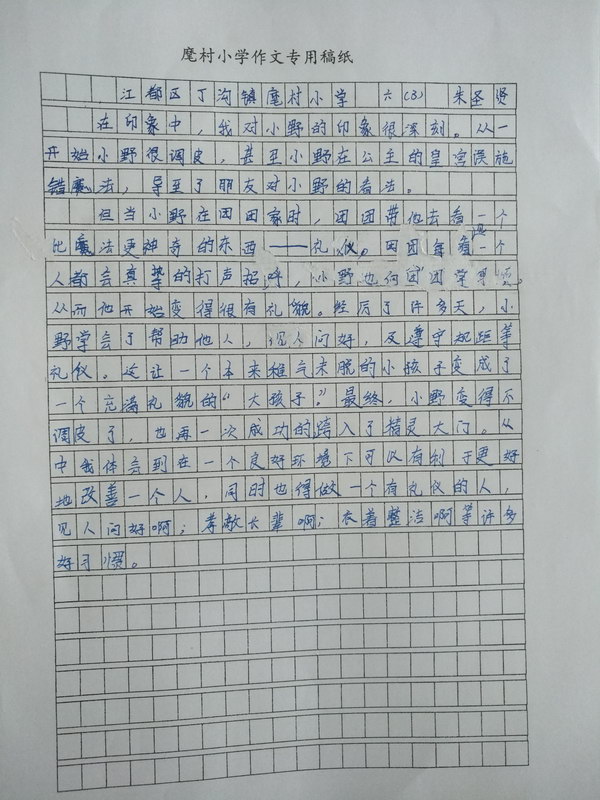 麾村小学作文专用稿纸
江都区丁沟镇麾村小学 六(3) 朱圣贤
在印象中，我对小野的印象很深刻。从一
开始小野很调皮，甚至小野在公主的皇宫误施
错魔法，导至了朋友对小野的看法。
但当小野在团团家时，团团带他去看一个
比魔法更神奇的东西——礼仪。团团每遇一个
人都会真挚的打声招呼，小野也向团团学习
从而他开始变得很有礼貌。经历了许多天，小
野学会了帮助他人，见人问好，及遵守规距等
礼仪。这让一个本来稚气未脱的小孩子变成了
一个充满礼貌的“大孩子”。最终，小野变得不
调皮了，也再一次成功的跨入了精灵大门。从
中我体会到在一个良好环境下可以有利于更好
地改善一个人，同时也得做一个有礼仪的人，
见人问好啊；孝敬长辈啊；衣着整洁啊等许多
好习惯。